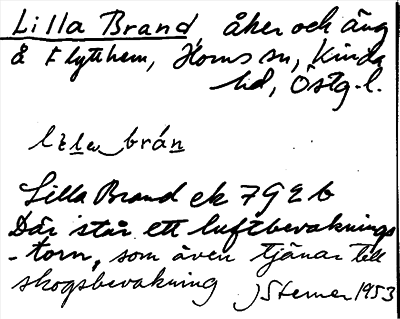 Lilla Brand, åker och äng
å Flytthem, Horns sn, Kinda
hd, Östg.l.
Lilla Brand ek 7 G E b
Där står ett luftbevaknings
-torn, som även tjänar till
skogsbevakning JSterner 1953